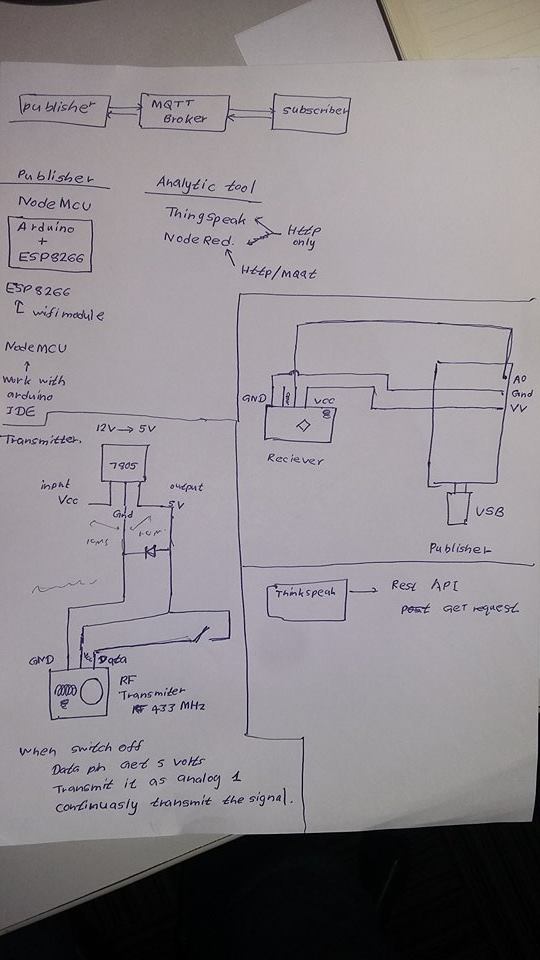 publisher
MQTT
Broker
subscriber
Publisher
NodeMCU
Arduino
+
ESP8266
ESP8266
wifi module
NodeMCU
work with
arduino
IDE
Analytic tool
Thingspeak
NodeRed.
Http
only
Http/MQQt
Transmitter.
12V → 5V
7805
input
Vcc
output
5V
Gnd
GND
Data
RF
Transmiter
RF 433 MHz
when switch off
Data pin Get 5 volts
Transmit it as analog 1
continuasly transmit the signal.
GND
VCC
Reciever
A0
Gnd
VV
USB
Publisher
Thinkspeak → Rest API
post GET request